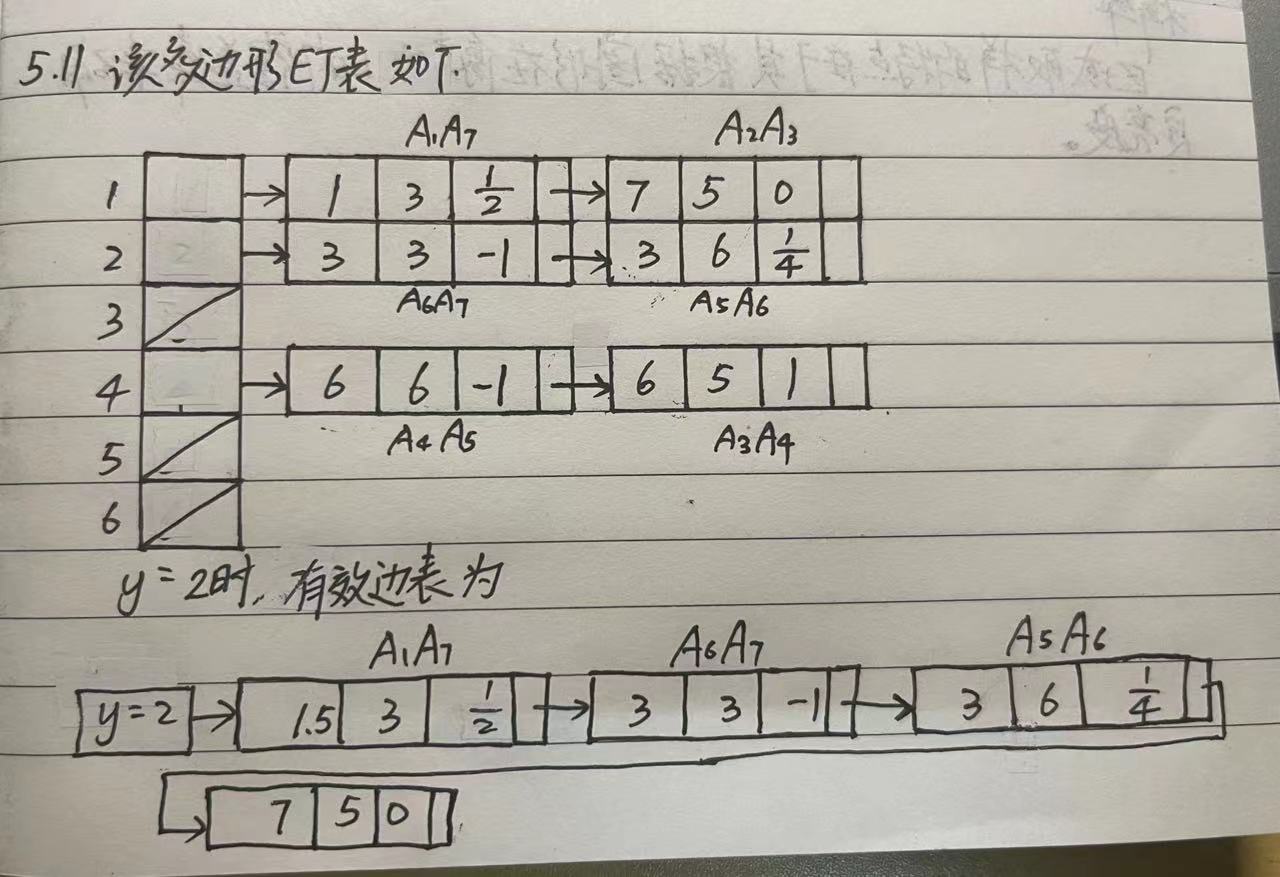 5.11 该多边形ET表如下.
A₁A₇ A₂A₃
1 1 3 1/2 7 5 0
2 3 3 -1 3 6 1/4
A₆A₇ A₅A₆
3
4 6 6 -1 6 5 1
A₄A₅ A₃A₄
5
6
y=2时, 有效边表为
A₁A₇ A₆A₇ A₅A₆
y=2 1.5 3 1/2 3 3 -1 3 6 1/4
7 5 0